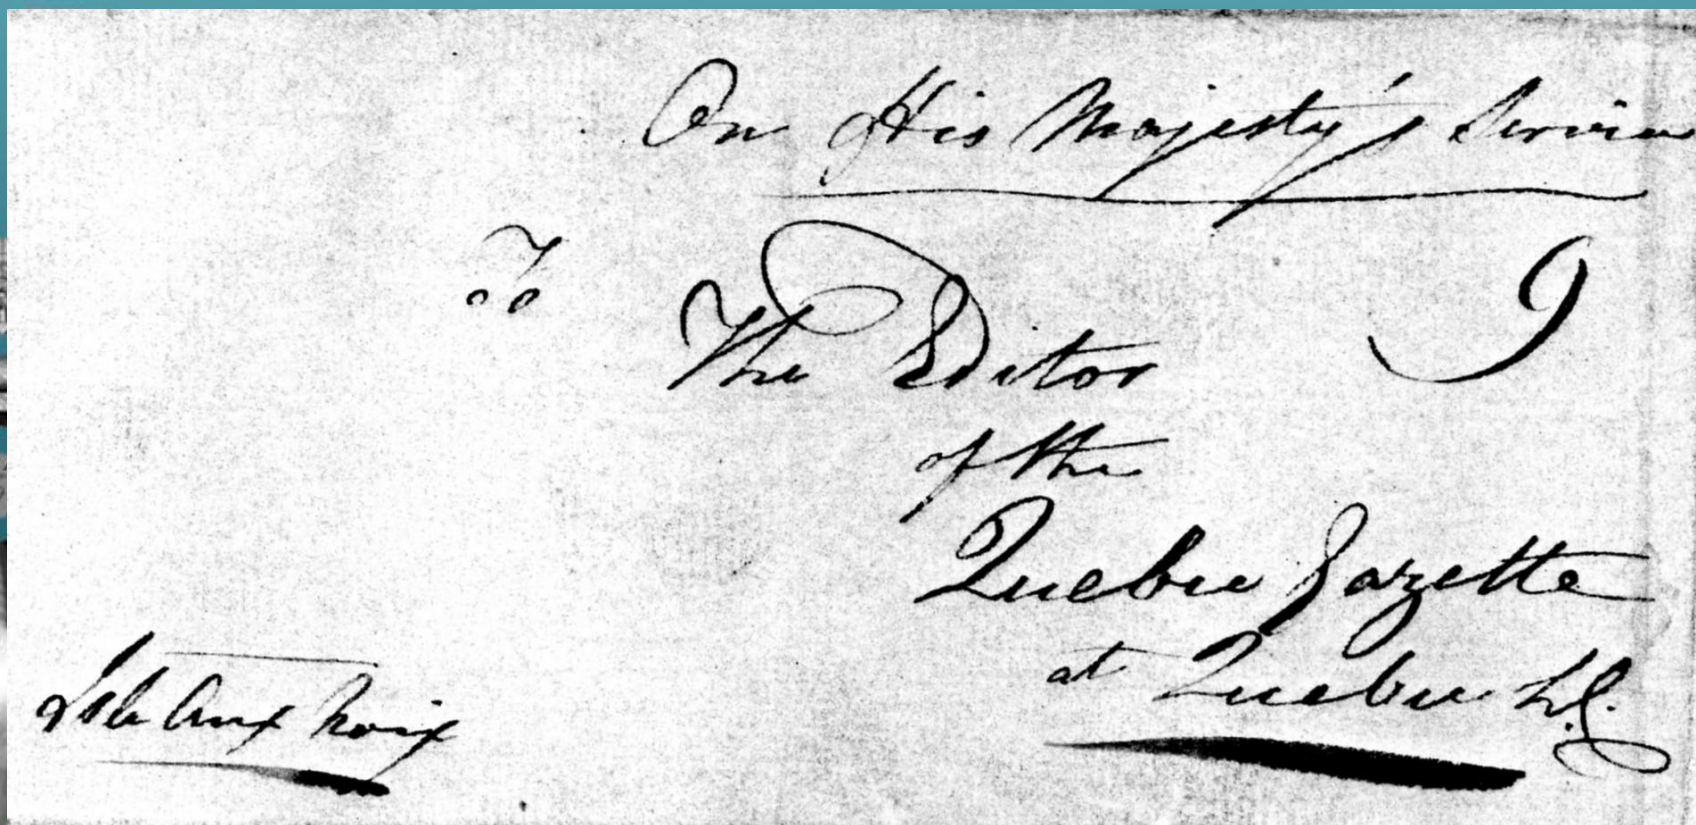 On His Majesty's Service
To
9
The Editor
of the
Quebec Gazette
at Quebec L.C.
Isle Aux Noix